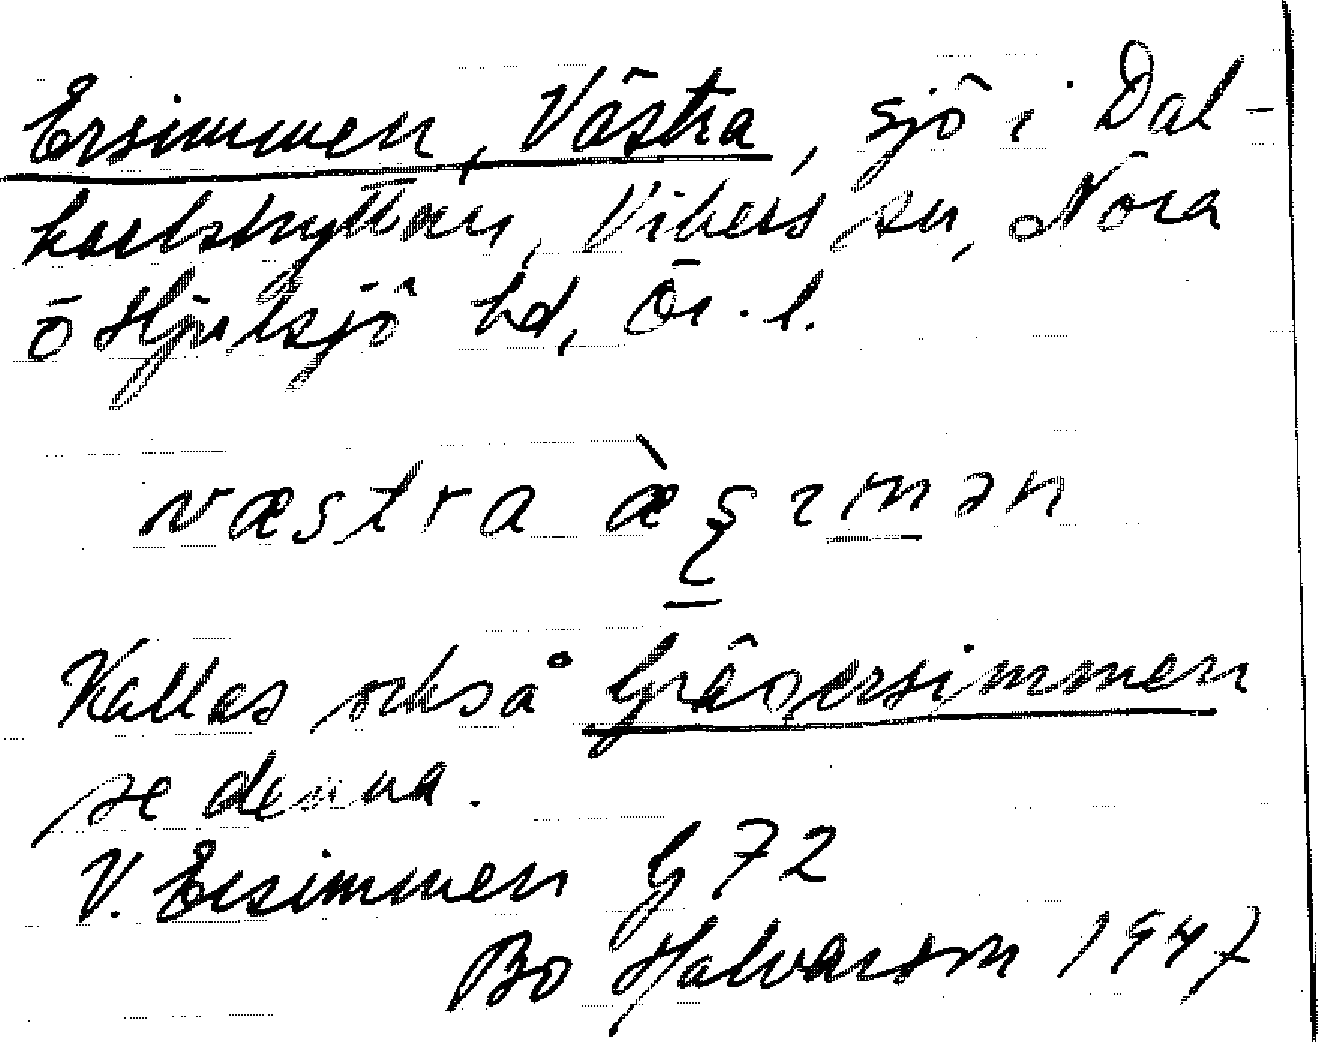 Ersimmen, Västra, sjö i Dal-
karlshyttan, Vikers sn, Nora
o Hjulsjö hd, Ör. l.
væstra
Kallas också Gräsersimmen
se denna.
V. Ersimmen G 72
Bo Halvarson 1947